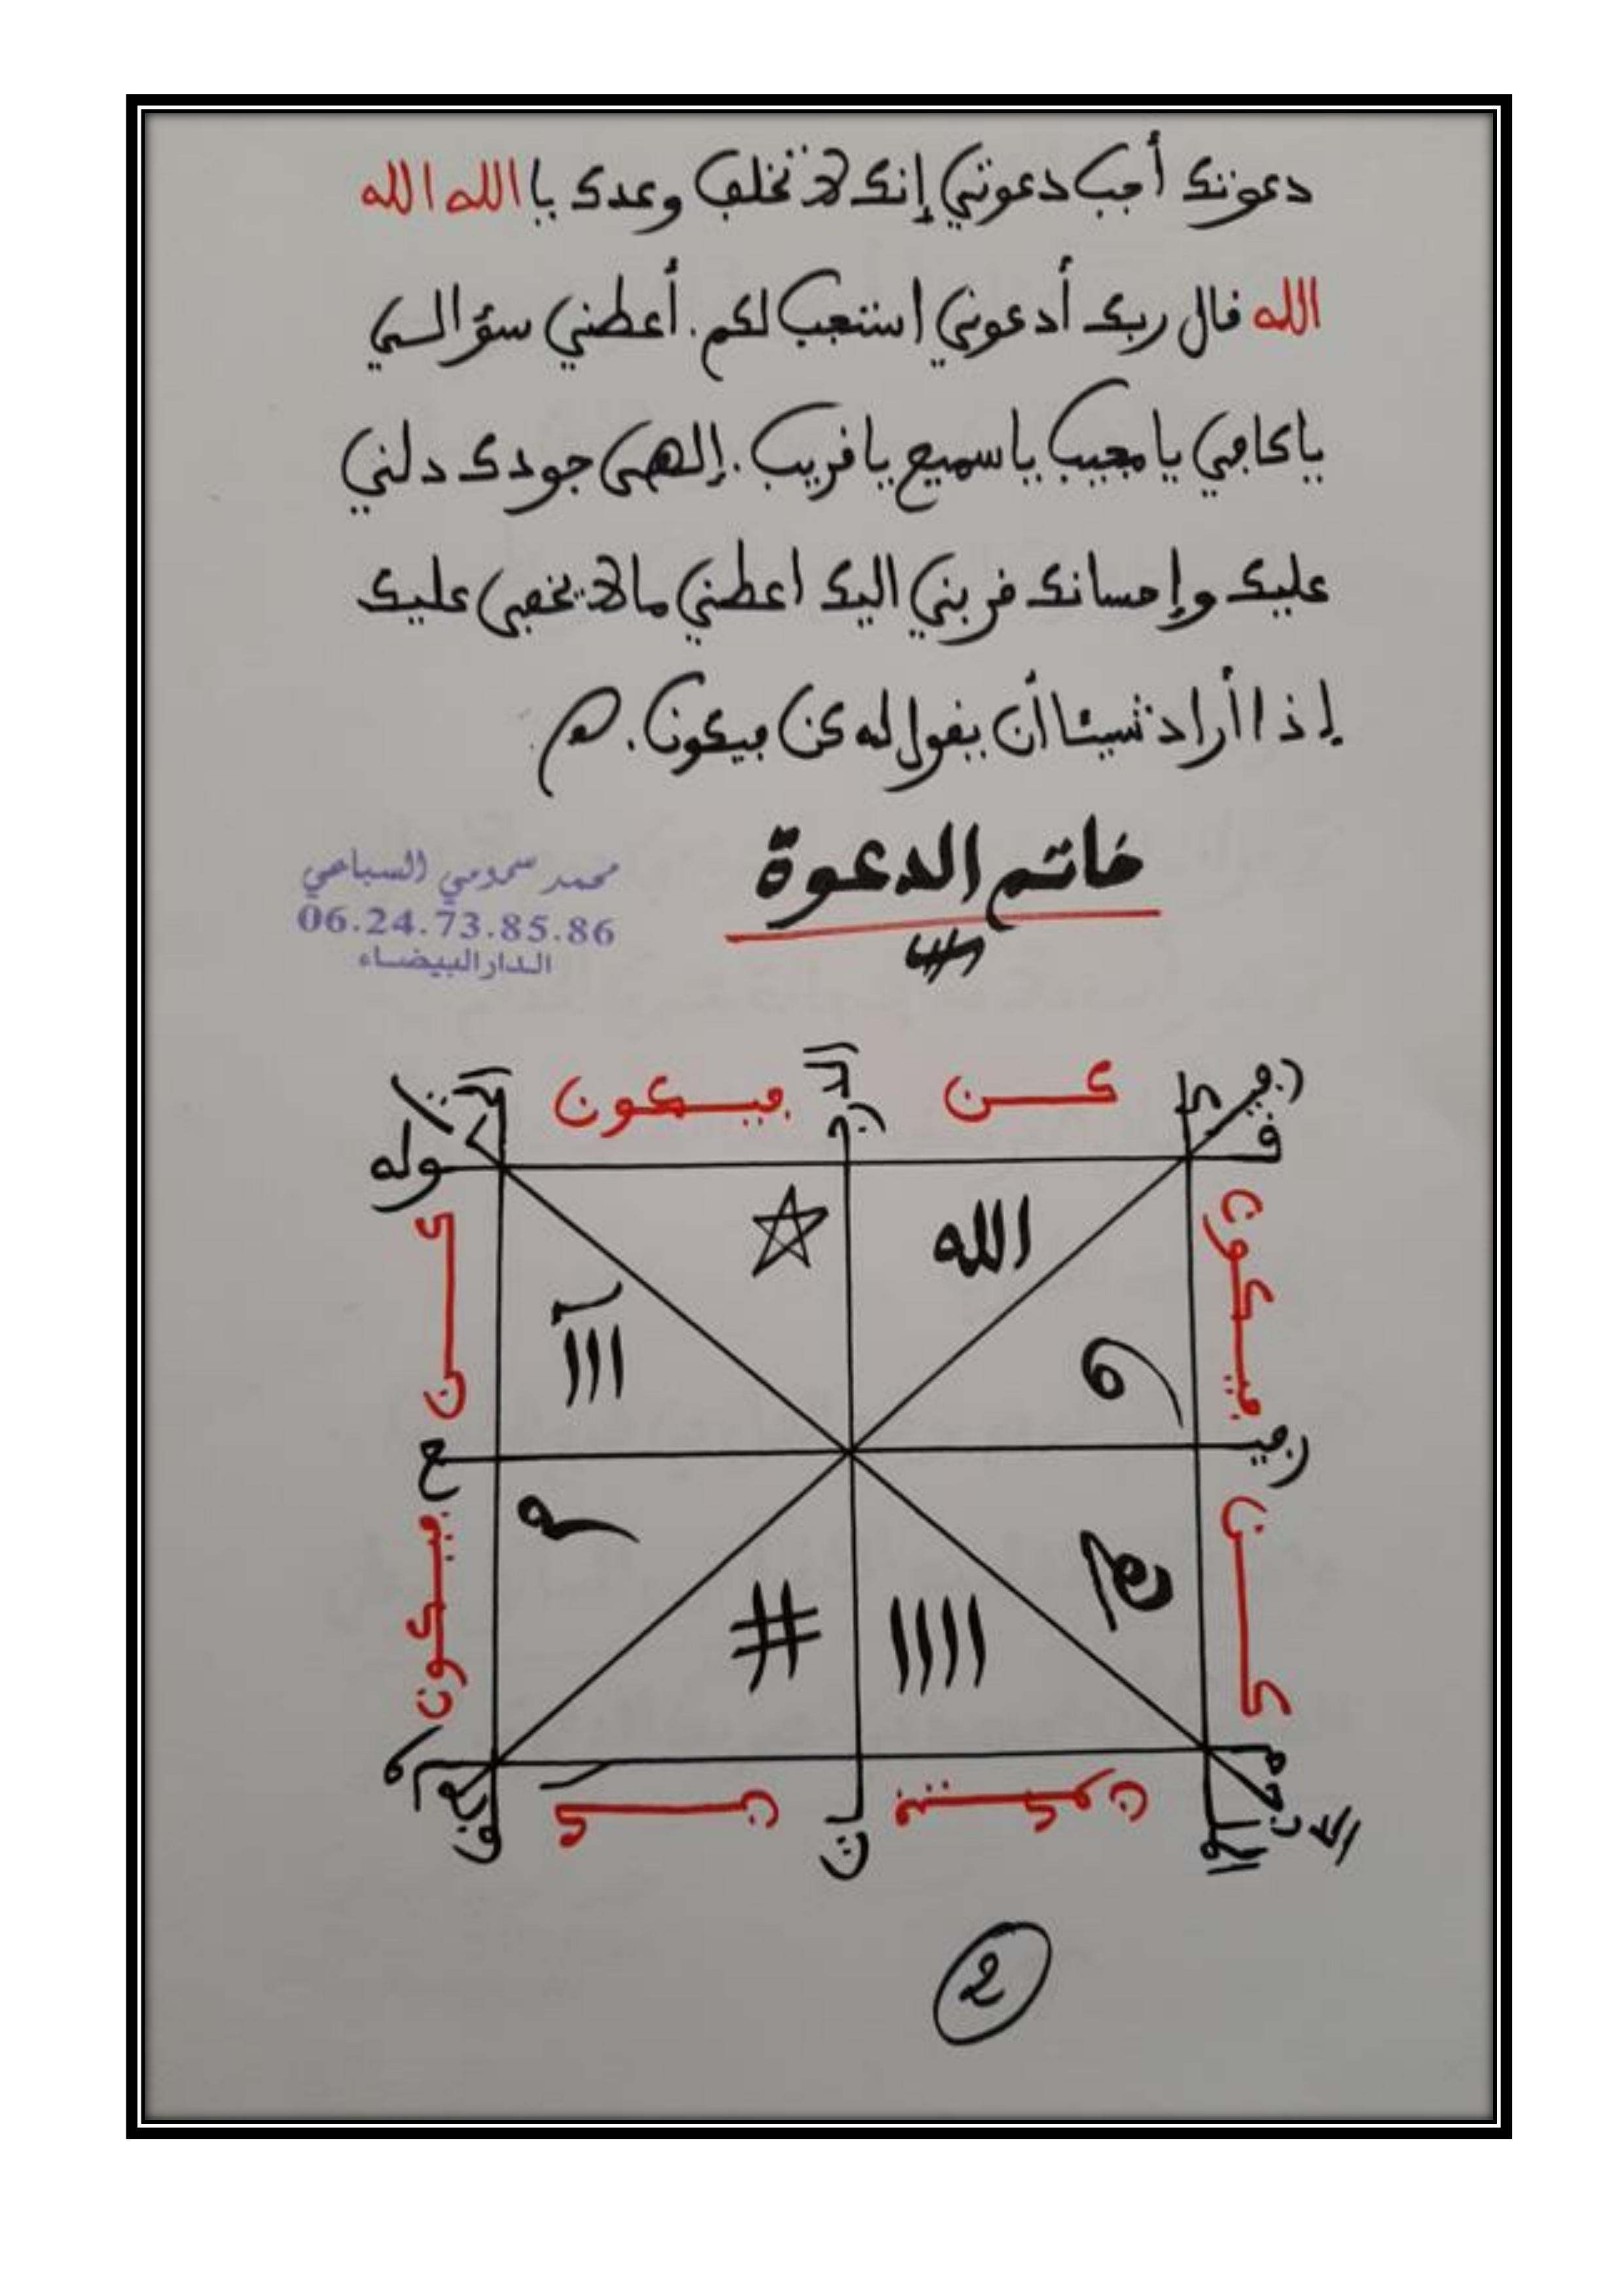 دعوتك أجب دعوتي إنك لا تخلف وعدك يا الله الله
الله قال ربك أدعوني استجب لكم. أعطني سؤالي
يا كافي يا مجيب يا سميع يا قريب. إلهي جودك دلني
عليك وإحسانك قربني اليك اعطني ما لا يخفى عليك
إذا أراد شيئا أن يقول له كن فيكون.
خاتم الدعوة
محمد سمومي السباعي
06.24.73.85.86
الدار البيضاء
كن فيكون
وله
الله
كن فيكون
كن فيكون
ع
كن
2